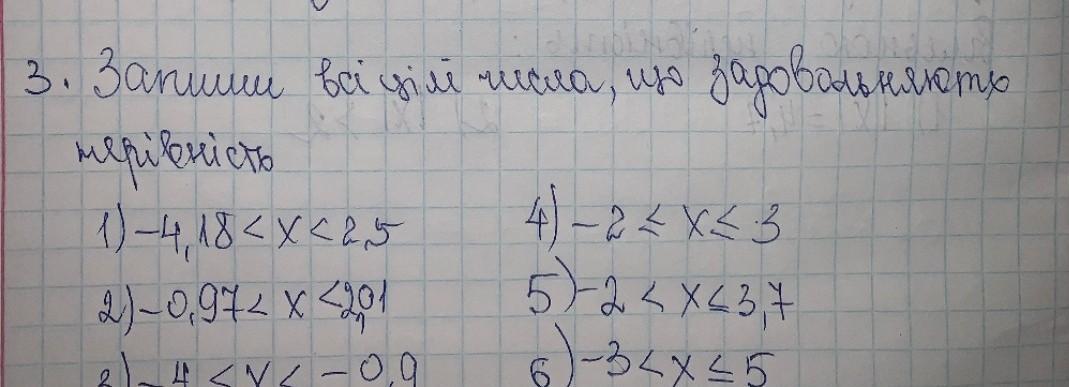 3. Запиши всі цілі числа, що задовольняють
нерівність
1) -4,18 < x < 2,5
4) -2 ≤ x ≤ 3
2) -0,97 < x < 2,01
5) -2 < x ≤ 3,7
3) -4 < x < -0,9
6) -3 < x ≤ 5